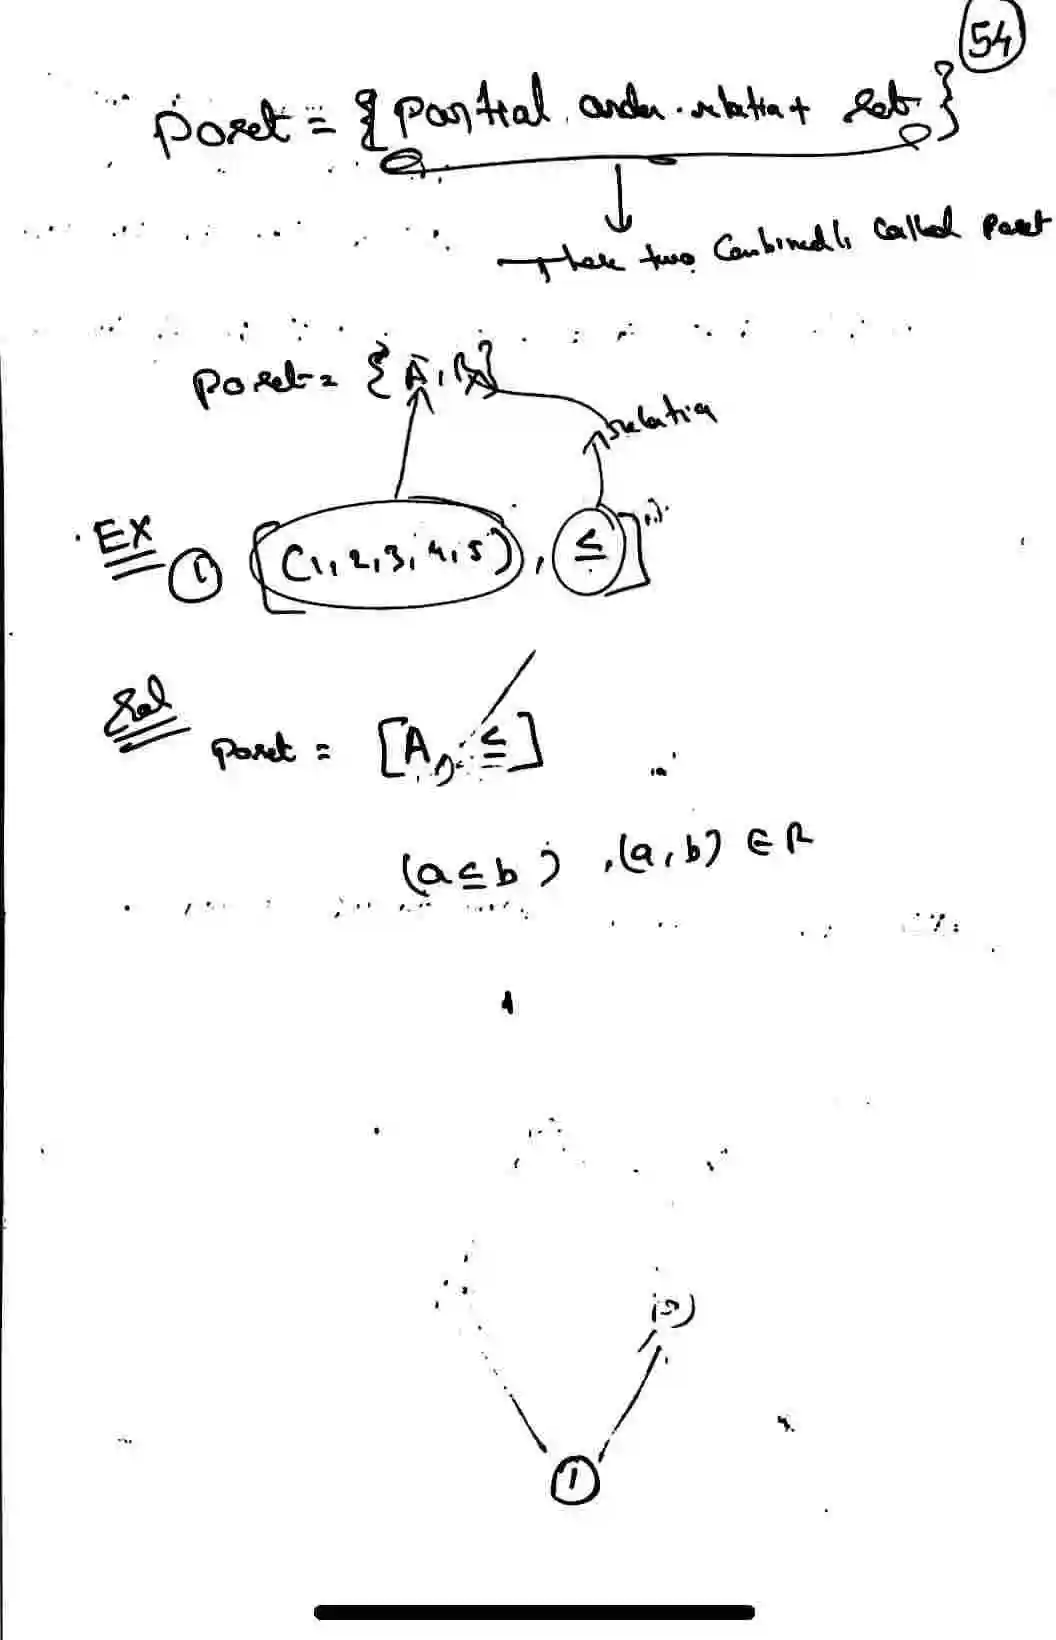 54
Poset = {Partial order relation + set}
These two Combinedly Called Poset
Poset = {A, R}
relation
EX
① [(1, 2, 3, 4, 5), ≤]
Sol
Poset = [A, ≤]
(a ≤ b), (a, b) ∈ R
①